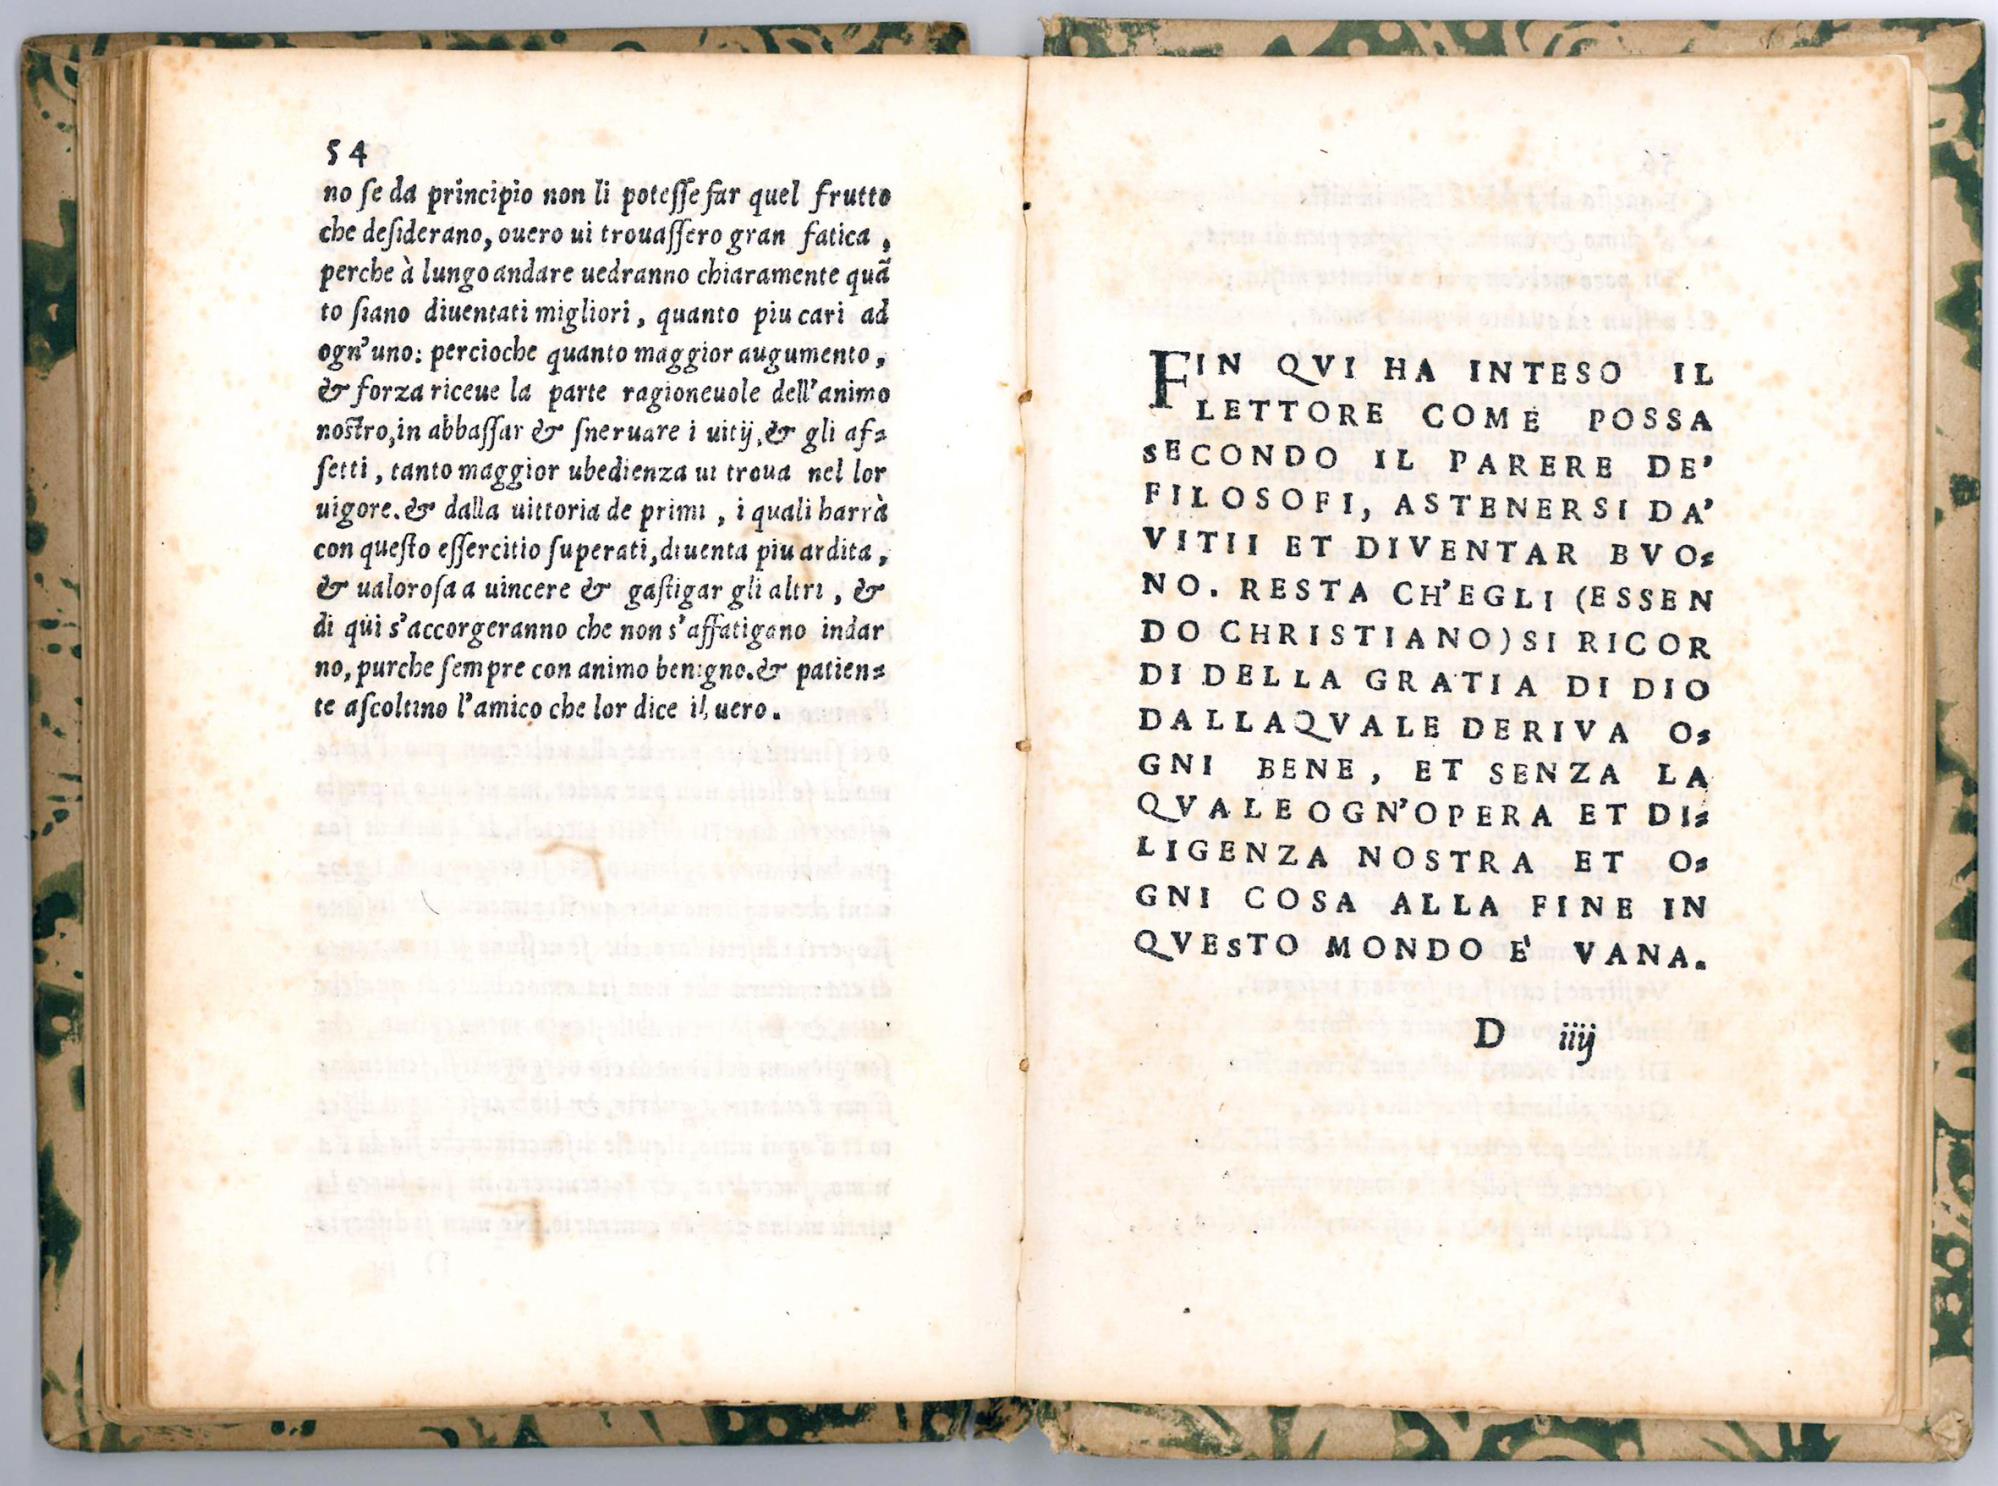 54
no ſe da principio non li poteſſe far quel frutto
che deſiderano, ouero ui trouaſſero gran fatica,
perche à lungo andare uedranno chiaramente quã
to ſiano diuentati migliori, quanto piu cari ad
ogn'uno: percioche quanto maggior augumento,
& forza riceue la parte ragioneuole dell'animo
noſtro, in abbaſſar & ſneruare i uitij, & gli af=
fetti, tanto maggior ubedienza ui troua nel lor
uigore. & dalla uittoria de primi, i quali harrà
con queſto eſſercitio ſuperati, diuenta piu ardita,
& ualoroſa a uincere & gaſtigar gli altri, &
di qui s'accorgeranno che non s'affatigano indar
no, purche ſempre con animo benigno. & patien=
te aſcoltino l'amico che lor dice il uero.
FIN QVI HA INTESO IL
LETTORE COME POSSA
SECONDO IL PARERE DE'
FILOSOFI, ASTENERSI DA'
VITII ET DIVENTAR BVO=
NO. RESTA CH'EGLI (ESSEN
DO CHRISTIANO) SI RICOR
DI DELLA GRATIA DI DIO
DALLAQVALE DERIVA O=
GNI BENE, ET SENZA LA
QVALE OGN'OPERA ET DI=
LIGENZA NOSTRA ET O=
GNI COSA ALLA FINE IN
QVESTO MONDO E' VANA.
D iiij